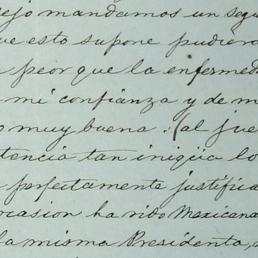 ejo mandamos un segu
ue esto supone pudiera
peor que la enfermed
mi confianza y de m
o muy buena: (al jue
tancia tan inicua lo
perfectamente justifica
ocasion ha sido Mexicana
la misma Presidenta,